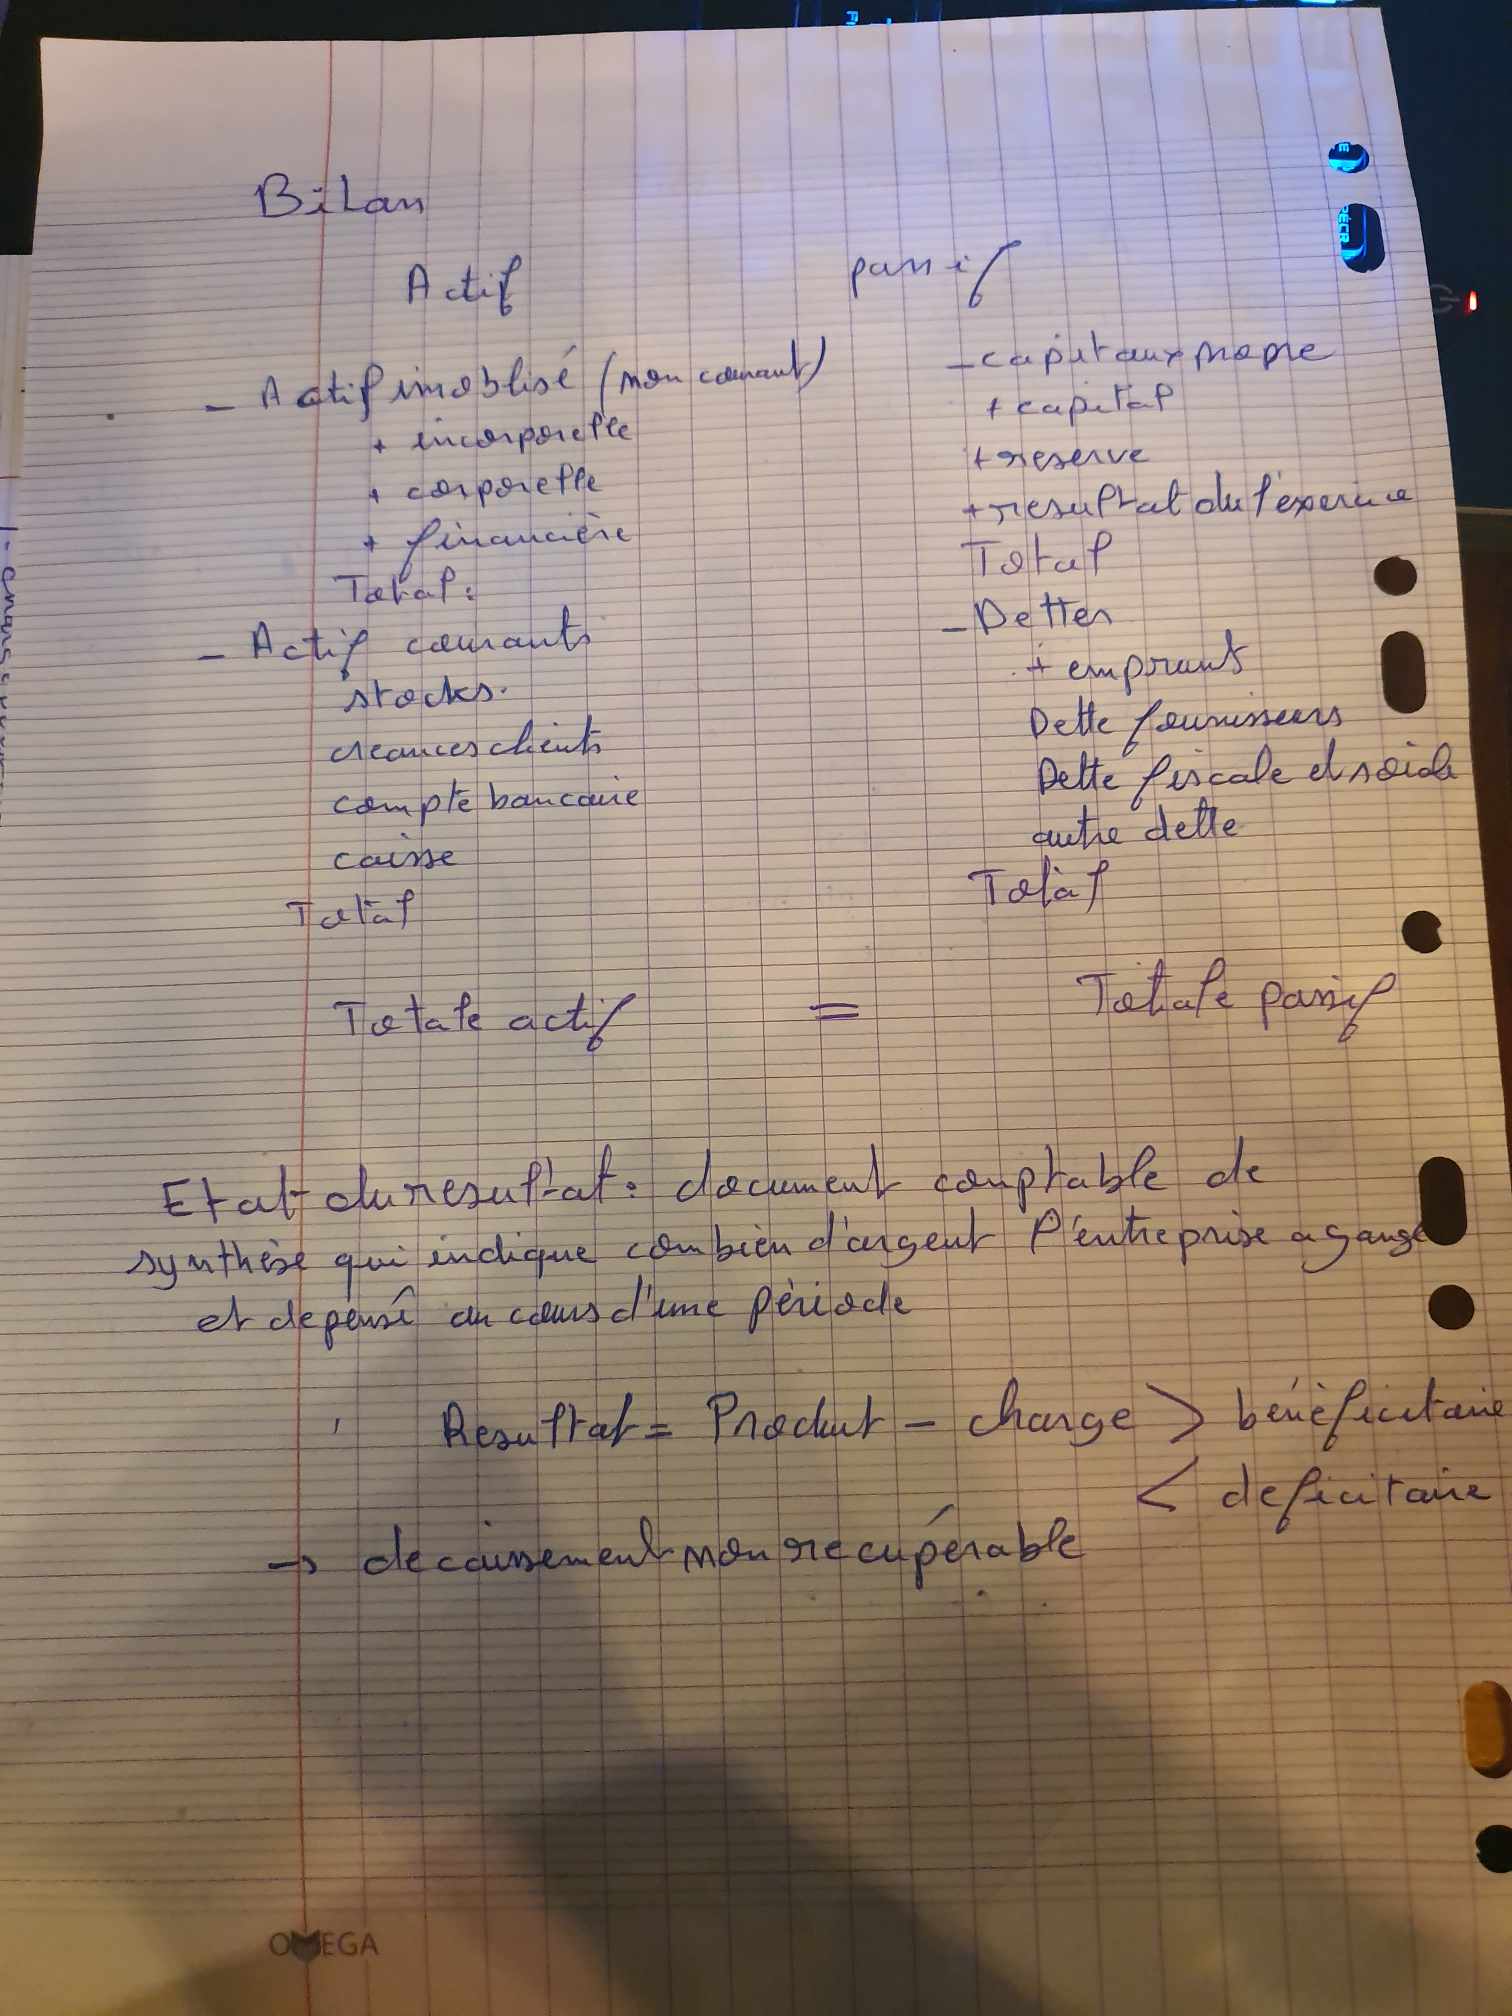 Bilan
Actif
passif
- Actif imoblisé (non courant)
+ incorporelle
+ corporelle
+ financière
Total :
- Actif courants
stocks.
creances clients
compte bancaire
caisse
Total
- capitaux propre
+ capital
+ reserve
+ resultat de l'exercice
Total
- Dettes
+ emprunt
Dette fournisseurs
Dette fiscale et sociale
autre dette
Total
Totale actif = Totale passif
Etat du resultat : document comptable de
synthèse qui indique combien d'argent l'entreprise a gangé
et depensé au cours d'une période
Resultat = Produit - charge > bénéficitaire
< deficitaire
→ decaissement non recupérable
OMEGA